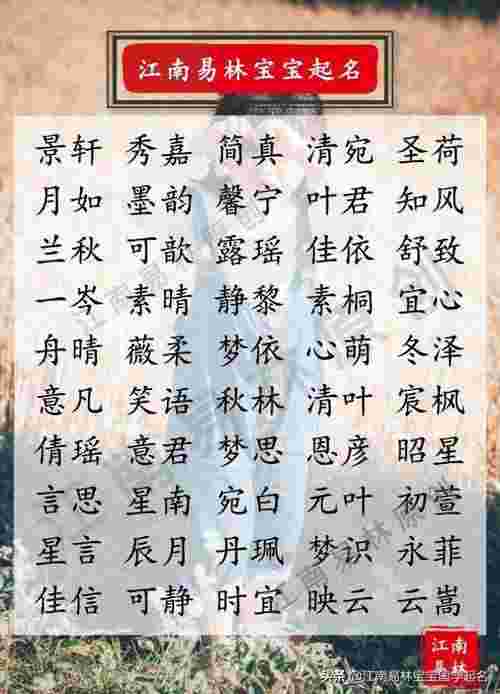 江南易林宝宝起名
景轩 秀嘉 简真 清宛 圣荷
月如 墨韵 馨宁 叶君 知风
兰秋 可歆 露瑶 佳依 舒致
一岑 素晴 静黎 素桐 宜心
舟晴 薇柔 梦依 心萌 冬泽
意凡 笑语 秋林 清叶 宸枫
倩瑶 意君 梦思 恩彦 昭星
言思 星南 宛白 元叶 初萱
星言 辰月 丹珮 梦识 永菲
佳信 可静 时宜 映云 云嵩
江南
易林
头条 @江南易林宝宝国学起名